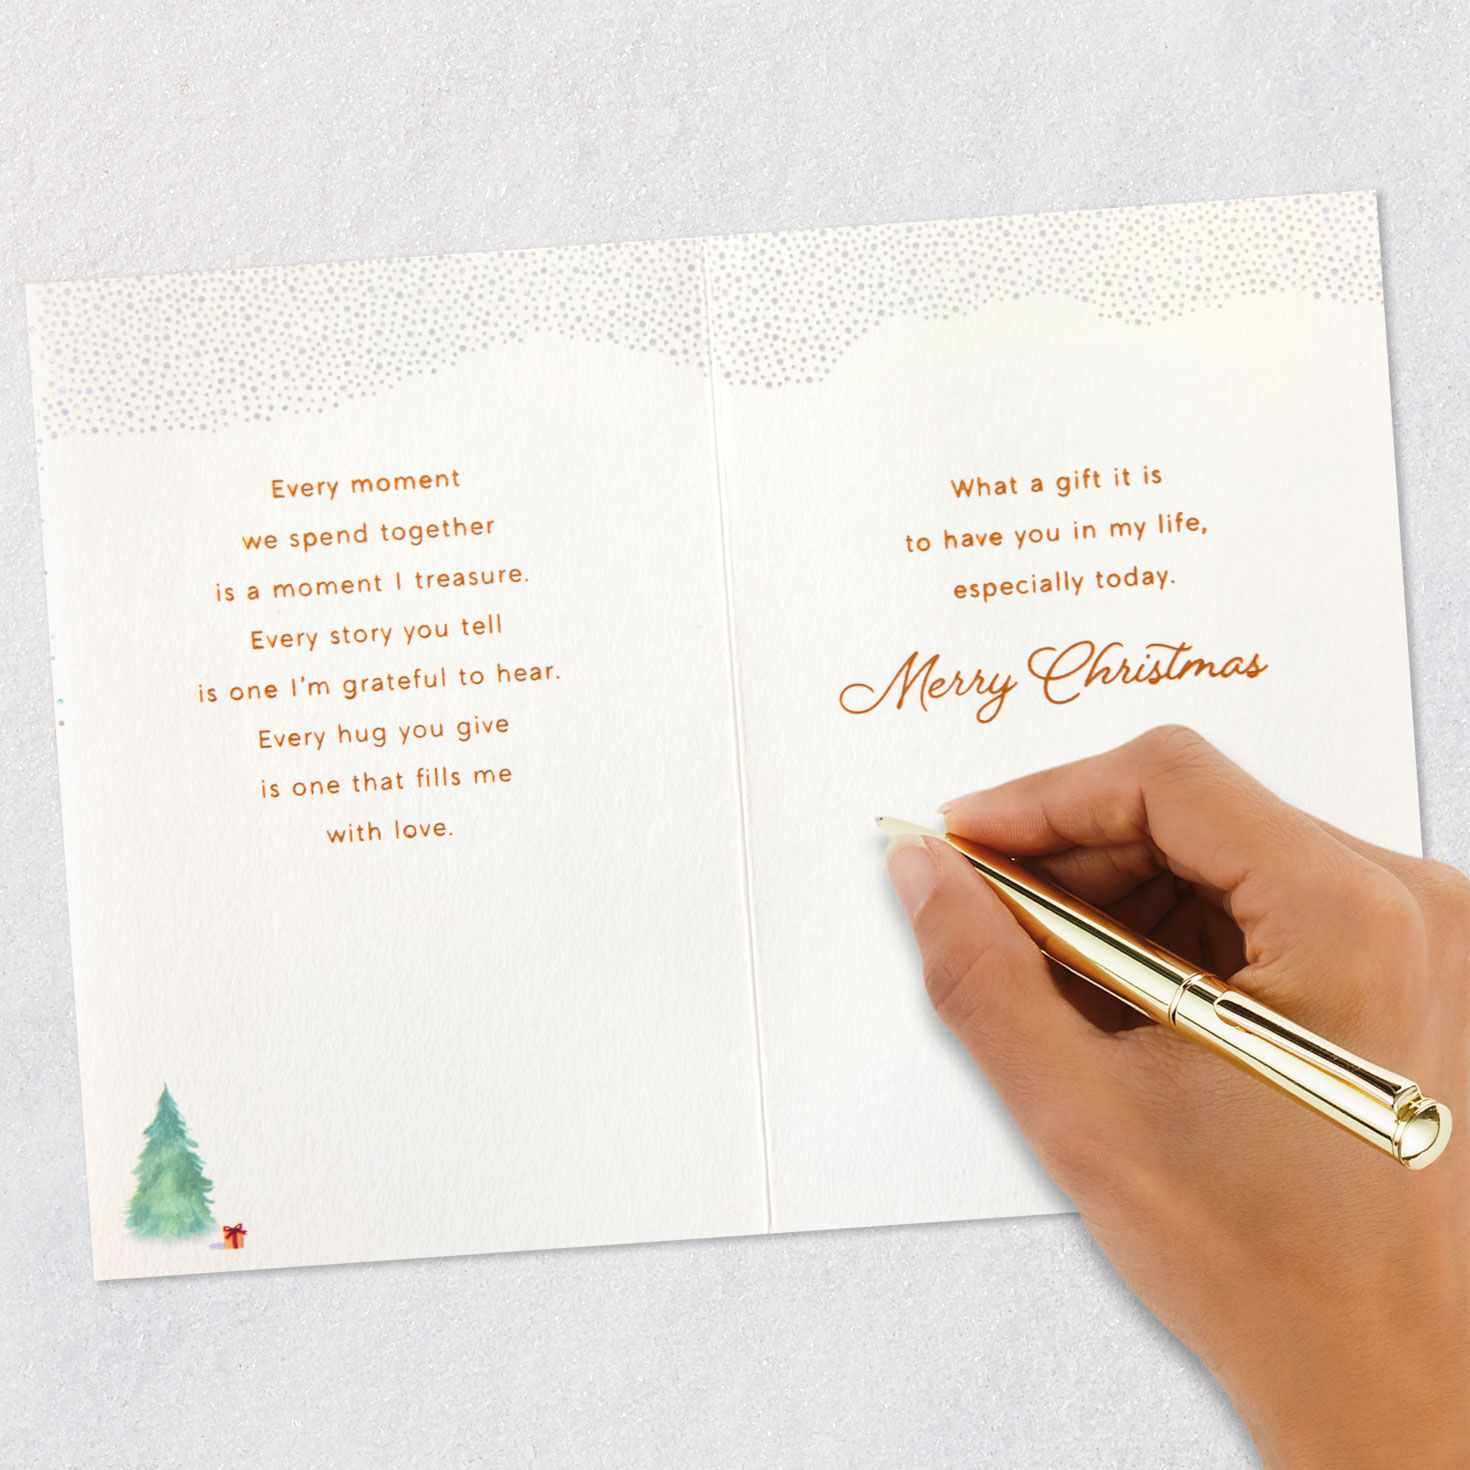 Every moment
we spend together
is a moment I treasure.
Every story you tell
is one I'm grateful to hear.
Every hug you give
is one that fills me
with love.
What a gift it is
to have you in my life,
especially today.
Merry Christmas